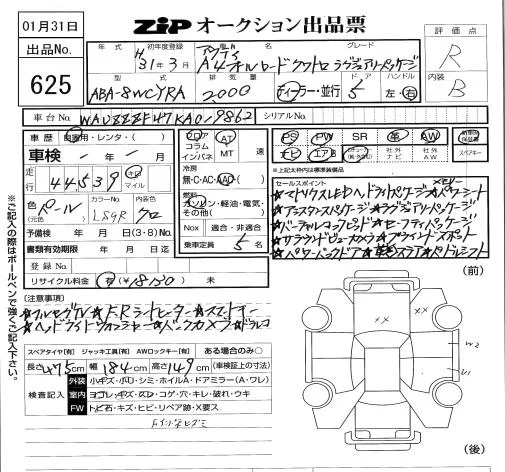 01月31日
ZIP オークション出品票
出品No.
625
年式
H
初年度登録
31年3月
車名
アウディ
グレード
A4オールロードクワトロ ラグジュアリーパッケージ
型式
ABA-8WCYRA
排気量
2,000
ドア
5
ハンドル
左・右
ディーラー・並行
評価点
R
内装
B
車台No.
WAUZZZF47KA019862
シリアルNo.
車歴
自家用・レンタ・( )
車検 - 年 - 月
走行
44539
キロ
マイル
色
(元色)
パール
カラーNo.
LS9R
内装色
クロ
予備検 年 月 日(3・8)No.
書類有効期限 年 月 日迄
登録No.
リサイクル料金
有
フロア
コラム
インパネ
AT
MT
速
冷房
無・C・AC・AAC・( )
燃料
ガソリン・軽油・電気・
その他( )
Nox 適合・非適合
乗車定員
5 名
PS
PW
SR
革
AW
ナビ
エアB
社外
ナビ
社外
AW
スペアキー
※上記太枠内は標準装備品
セールスポイント
★マトリクスLEDヘッドライトパッケージ★パワーシート
★アシスタンスパッケージ★ラグジュアリーパッケージ
★バーチャルコックピット★セーフティパッケージ
★サラウンドビューカメラ★ブラインドスポット
★パワーバックドア★
★パドルシフト
(注意事項)
★フルセグTV★FRシートヒーター★スマートキー
★ヘッドライトウォッシャー★バックカメラ★ドラレコ
スペアタイヤ[有] ジャッキ工具[有] AWロックキー[有] ある場合のみ○
長さ475cm 幅184cm 高さ149cm (車検証上の寸法)
検査記入
外装
小キズ・小凹・シミ・ホイルA・ドアミラー(A・ワレ)
室内
ヨゴレ・キズ・スレ・コゲ・穴・キレ・破れ・ウキ
FW
トビ石・キズ・ヒビ・リペア跡・X要ス
(前)
××
×
W2
U1
(後)
※ご記入の際はボールペンで強くご記入下さい。